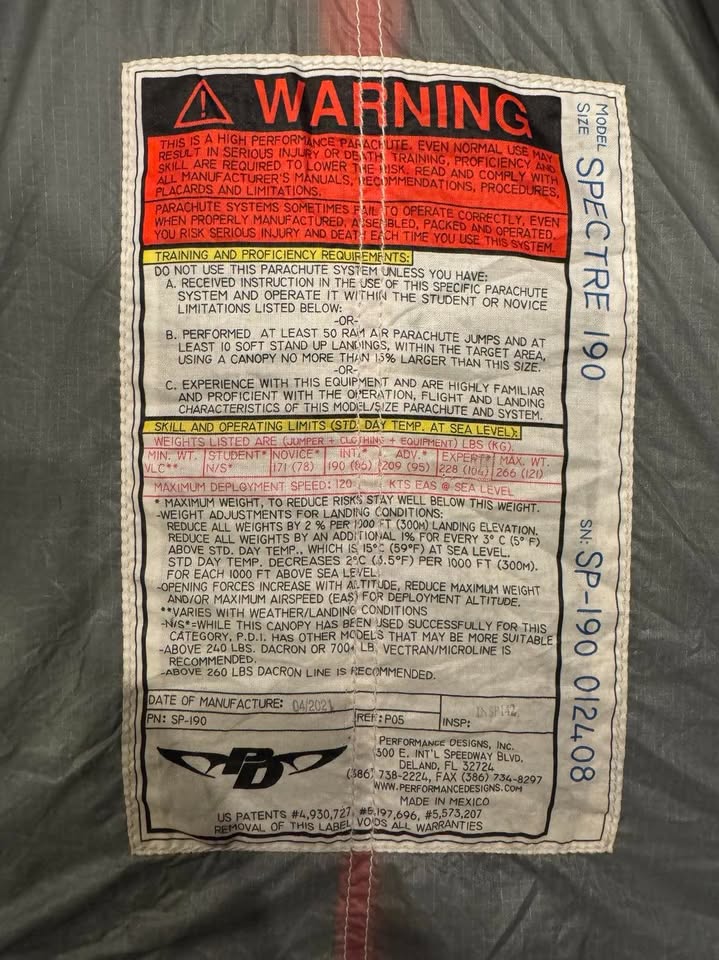 WARNING
THIS IS A HIGH PERFORMANCE PARACHUTE. EVEN NORMAL USE MAY
RESULT IN SERIOUS INJURY OR DEATH. TRAINING, PROFICIENCY AND
SKILL ARE REQUIRED TO LOWER THE RISK. READ AND COMPLY WITH
ALL MANUFACTURER'S MANUALS, RECOMMENDATIONS, PROCEDURES,
PLACARDS AND LIMITATIONS.
PARACHUTE SYSTEMS SOMETIMES FAIL TO OPERATE CORRECTLY, EVEN
WHEN PROPERLY MANUFACTURED, ASSEMBLED, PACKED AND OPERATED.
YOU RISK SERIOUS INJURY AND DEATH EACH TIME YOU USE THIS SYSTEM.
TRAINING AND PROFICIENCY REQUIREMENTS:
DO NOT USE THIS PARACHUTE SYSTEM UNLESS YOU HAVE:
A. RECEIVED INSTRUCTION IN THE USE OF THIS SPECIFIC PARACHUTE
SYSTEM AND OPERATE IT WITHIN THE STUDENT OR NOVICE
LIMITATIONS LISTED BELOW:
-OR-
B. PERFORMED AT LEAST 50 RAM AIR PARACHUTE JUMPS AND AT
LEAST 10 SOFT STAND UP LANDINGS, WITHIN THE TARGET AREA,
USING A CANOPY NO MORE THAN 15% LARGER THAN THIS SIZE.
-OR-
C. EXPERIENCE WITH THIS EQUIPMENT AND ARE HIGHLY FAMILIAR
AND PROFICIENT WITH THE OPERATION, FLIGHT AND LANDING
CHARACTERISTICS OF THIS MODEL/SIZE PARACHUTE AND SYSTEM.
SKILL AND OPERATING LIMITS (STD. DAY TEMP. AT SEA LEVEL):
WEIGHTS LISTED ARE (JUMPER + CLOTHING + EQUIPMENT) LBS (KG).
MIN. WT. STUDENT* NOVICE* INT.* ADV.* EXPERT* MAX. WT.
VLC** N/S* 171 (78) 190 (86) 209 (95) 228 (104) 266 (121)
MAXIMUM DEPLOYMENT SPEED: 120 KTS EAS @ SEA LEVEL
* MAXIMUM WEIGHT, TO REDUCE RISKS STAY WELL BELOW THIS WEIGHT.
-WEIGHT ADJUSTMENTS FOR LANDING CONDITIONS:
REDUCE ALL WEIGHTS BY 2 % PER 1000 FT (300M) LANDING ELEVATION.
REDUCE ALL WEIGHTS BY AN ADDITIONAL 1% FOR EVERY 3° C (5° F)
ABOVE STD. DAY TEMP., WHICH IS 15°C (59°F) AT SEA LEVEL.
STD DAY TEMP. DECREASES 2°C (3.5°F) PER 1000 FT (300M).
FOR EACH 1000 FT ABOVE SEA LEVEL.
-OPENING FORCES INCREASE WITH ALTITUDE, REDUCE MAXIMUM WEIGHT
AND/OR MAXIMUM AIRSPEED (EAS) FOR DEPLOYMENT ALTITUDE.
**VARIES WITH WEATHER/LANDING CONDITIONS
-N/S*=WHILE THIS CANOPY HAS BEEN USED SUCCESSFULLY FOR THIS
CATEGORY, P.D.I. HAS OTHER MODELS THAT MAY BE MORE SUITABLE
-ABOVE 240 LBS. DACRON OR 700+ LB. VECTRAN/MICROLINE IS
RECOMMENDED.
-ABOVE 260 LBS DACRON LINE IS RECOMMENDED.
DATE OF MANUFACTURE: 04/2021
PN: SP-190 REF: P05 INSP:
PD
PERFORMANCE DESIGNS, INC.
300 E. INT'L SPEEDWAY BLVD.
DELAND, FL 32724
(386) 738-2224, FAX (386) 734-8297
WWW.PERFORMANCEDESIGNS.COM
MADE IN MEXICO
US PATENTS #4,930,727, #5,197,696, #5,573,207
REMOVAL OF THIS LABEL VOIDS ALL WARRANTIES
MODEL
SIZE SPECTRE 190
SN: SP-190 012408